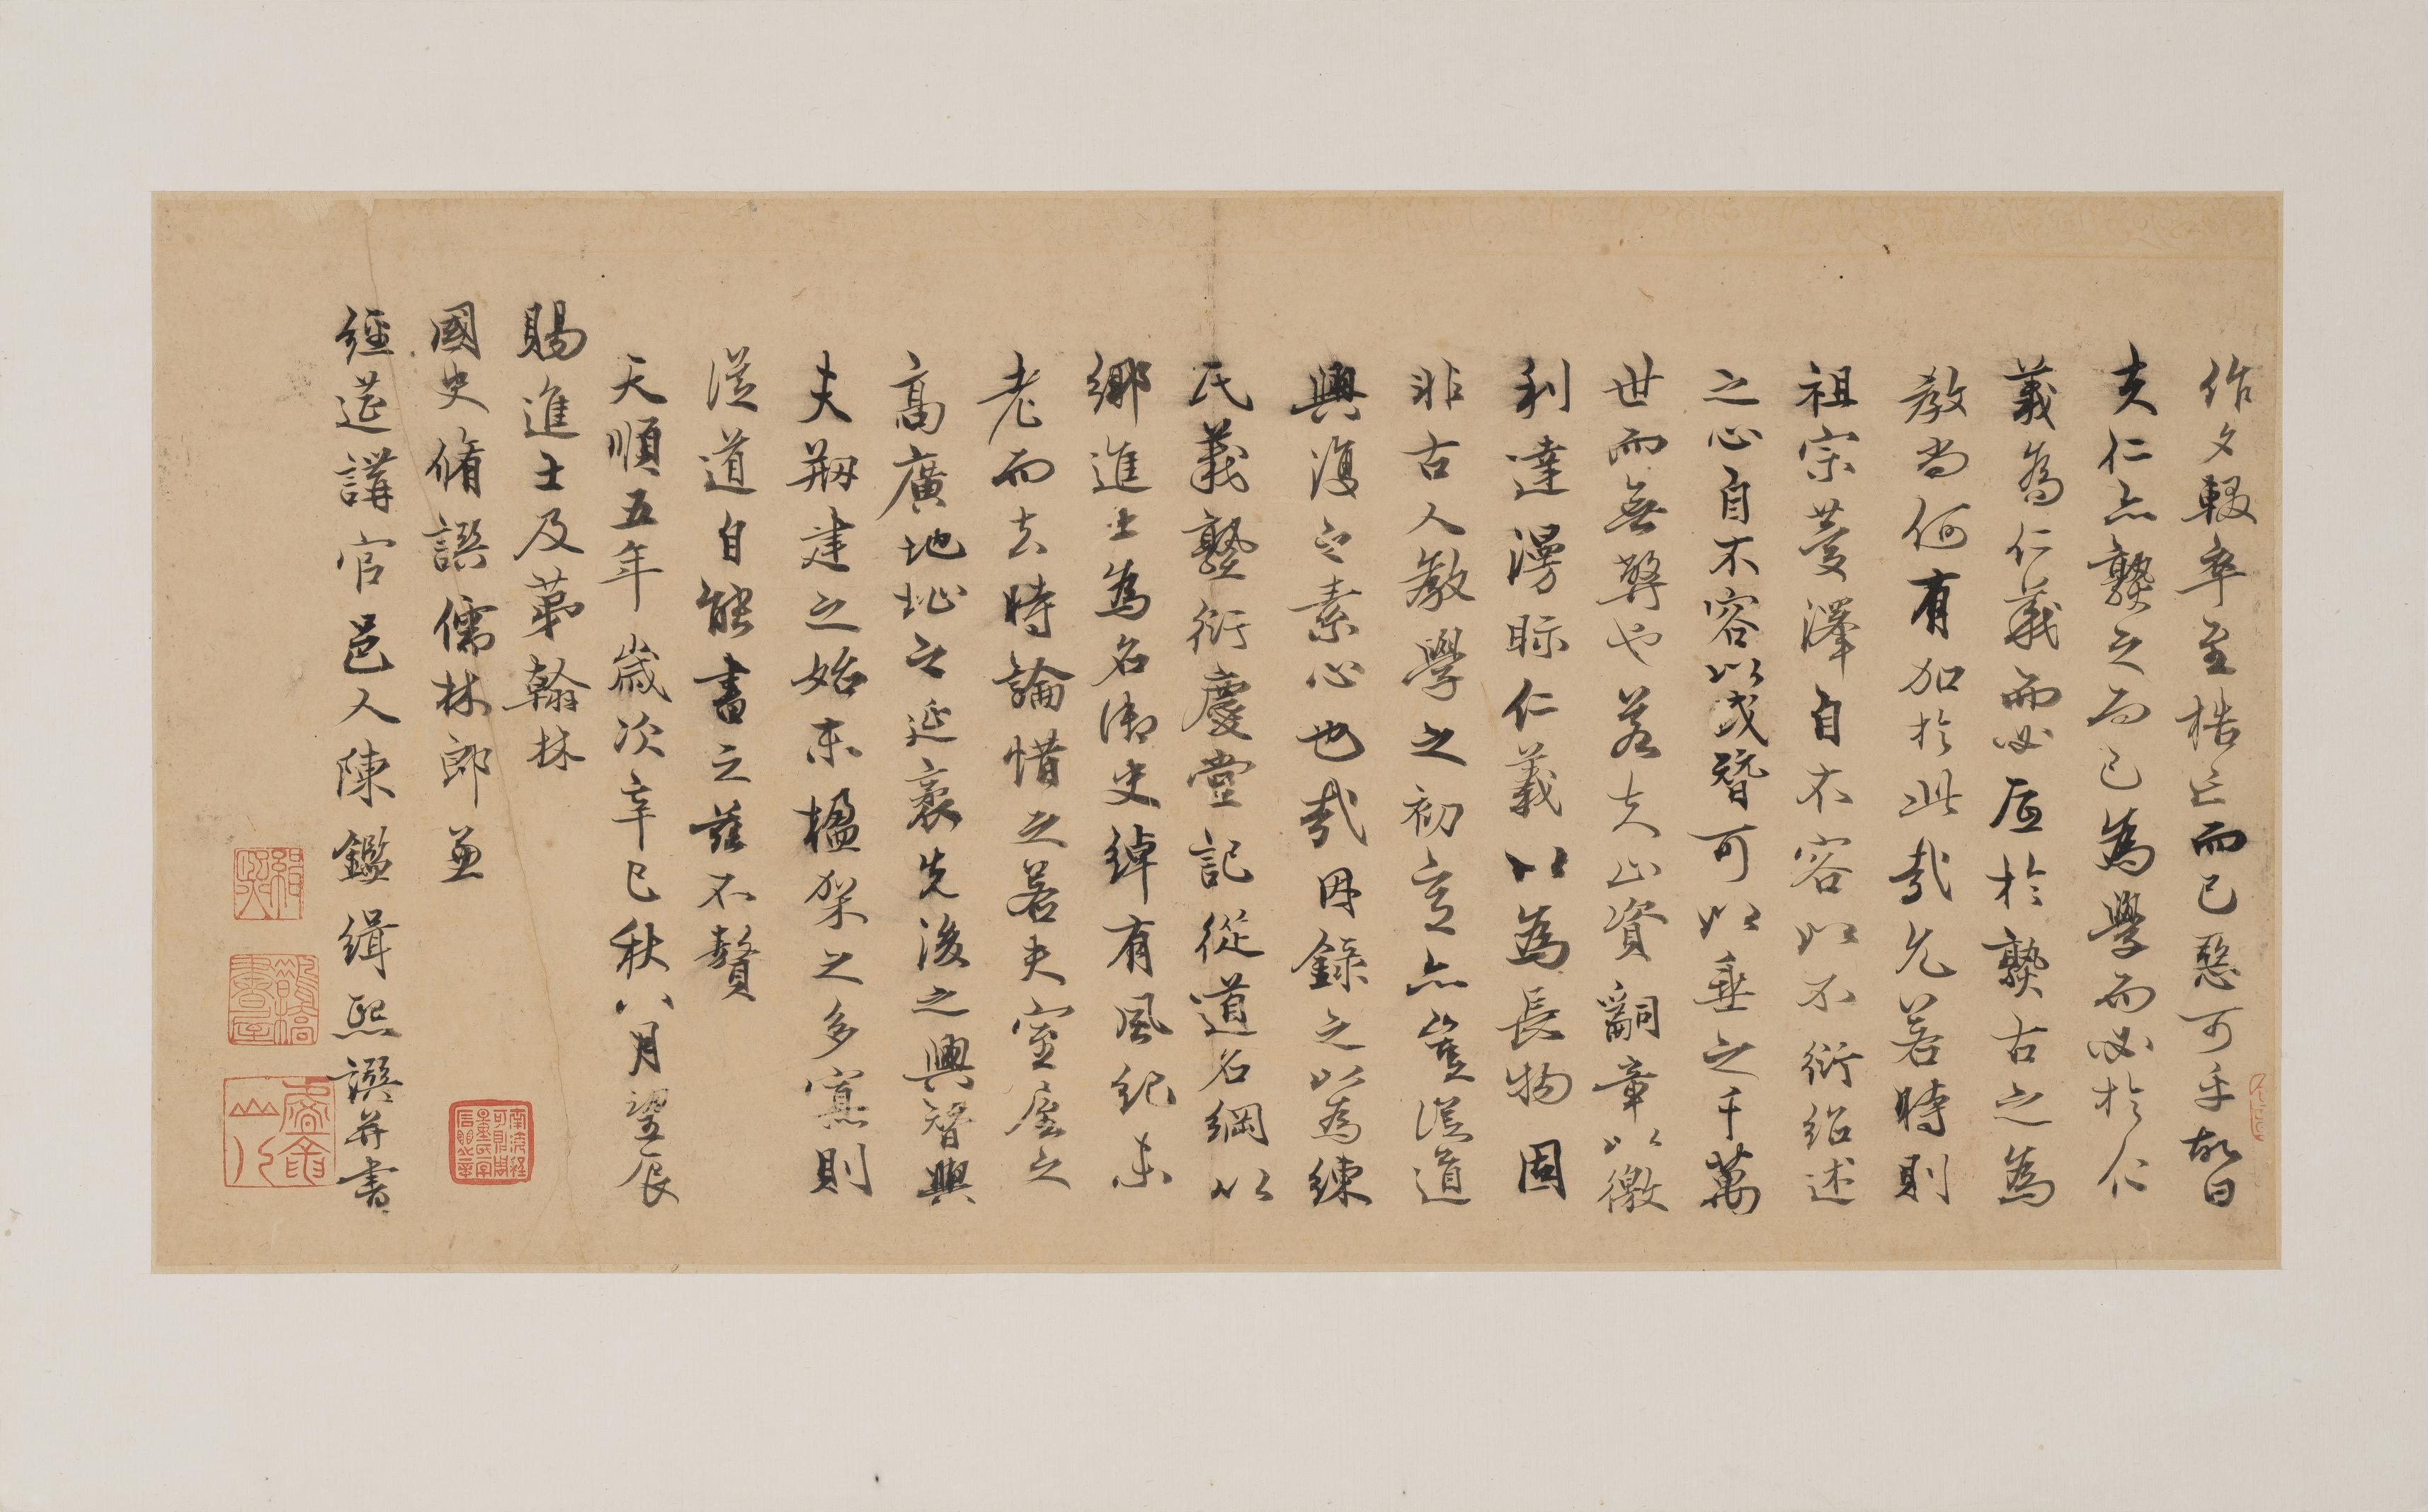 作文輟卒至梏亡而已惡可乎故曰
夫仁亦熟之而已為學而必於仁
義為仁義而必底於熟古之為
教尚何有加於此哉允若時則
祖宗慶澤自不容以不衍紹述
之心自不容以或替可以垂之千萬
世而無弊也若夫止資嗣章以徼
利達漫眎仁義以為長物固
非古人教學之初意亦豈從道
興復之素心也哉因錄之以為練
氏義塾衍慶堂記從道名綱以
鄉進士為名御史綽有風紀未
老而去時論惜之若夫室屋之
高廣地址之延袤先後之興替與
夫剏建之始末楹架之多寡則
從道自能書之茲不贅
天順五年歲次辛巳秋八月望辰
賜進士及第翰林
國史脩譔儒林郎兼
經筵講官邑人陳鑑緝熙譔并書